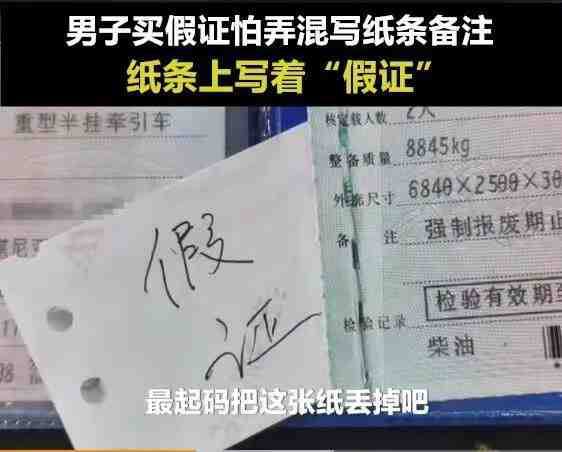 男子买假证怕弄混写纸条备注
纸条上写着“假证”
重型半挂牵引车
核定载人数 2人
整备质量 8845kg
外廓尺寸 6840×2500×30
备注 强制报废期止
检验有效期至
检验记录
柴油
假
证
最起码把这张纸丢掉吧